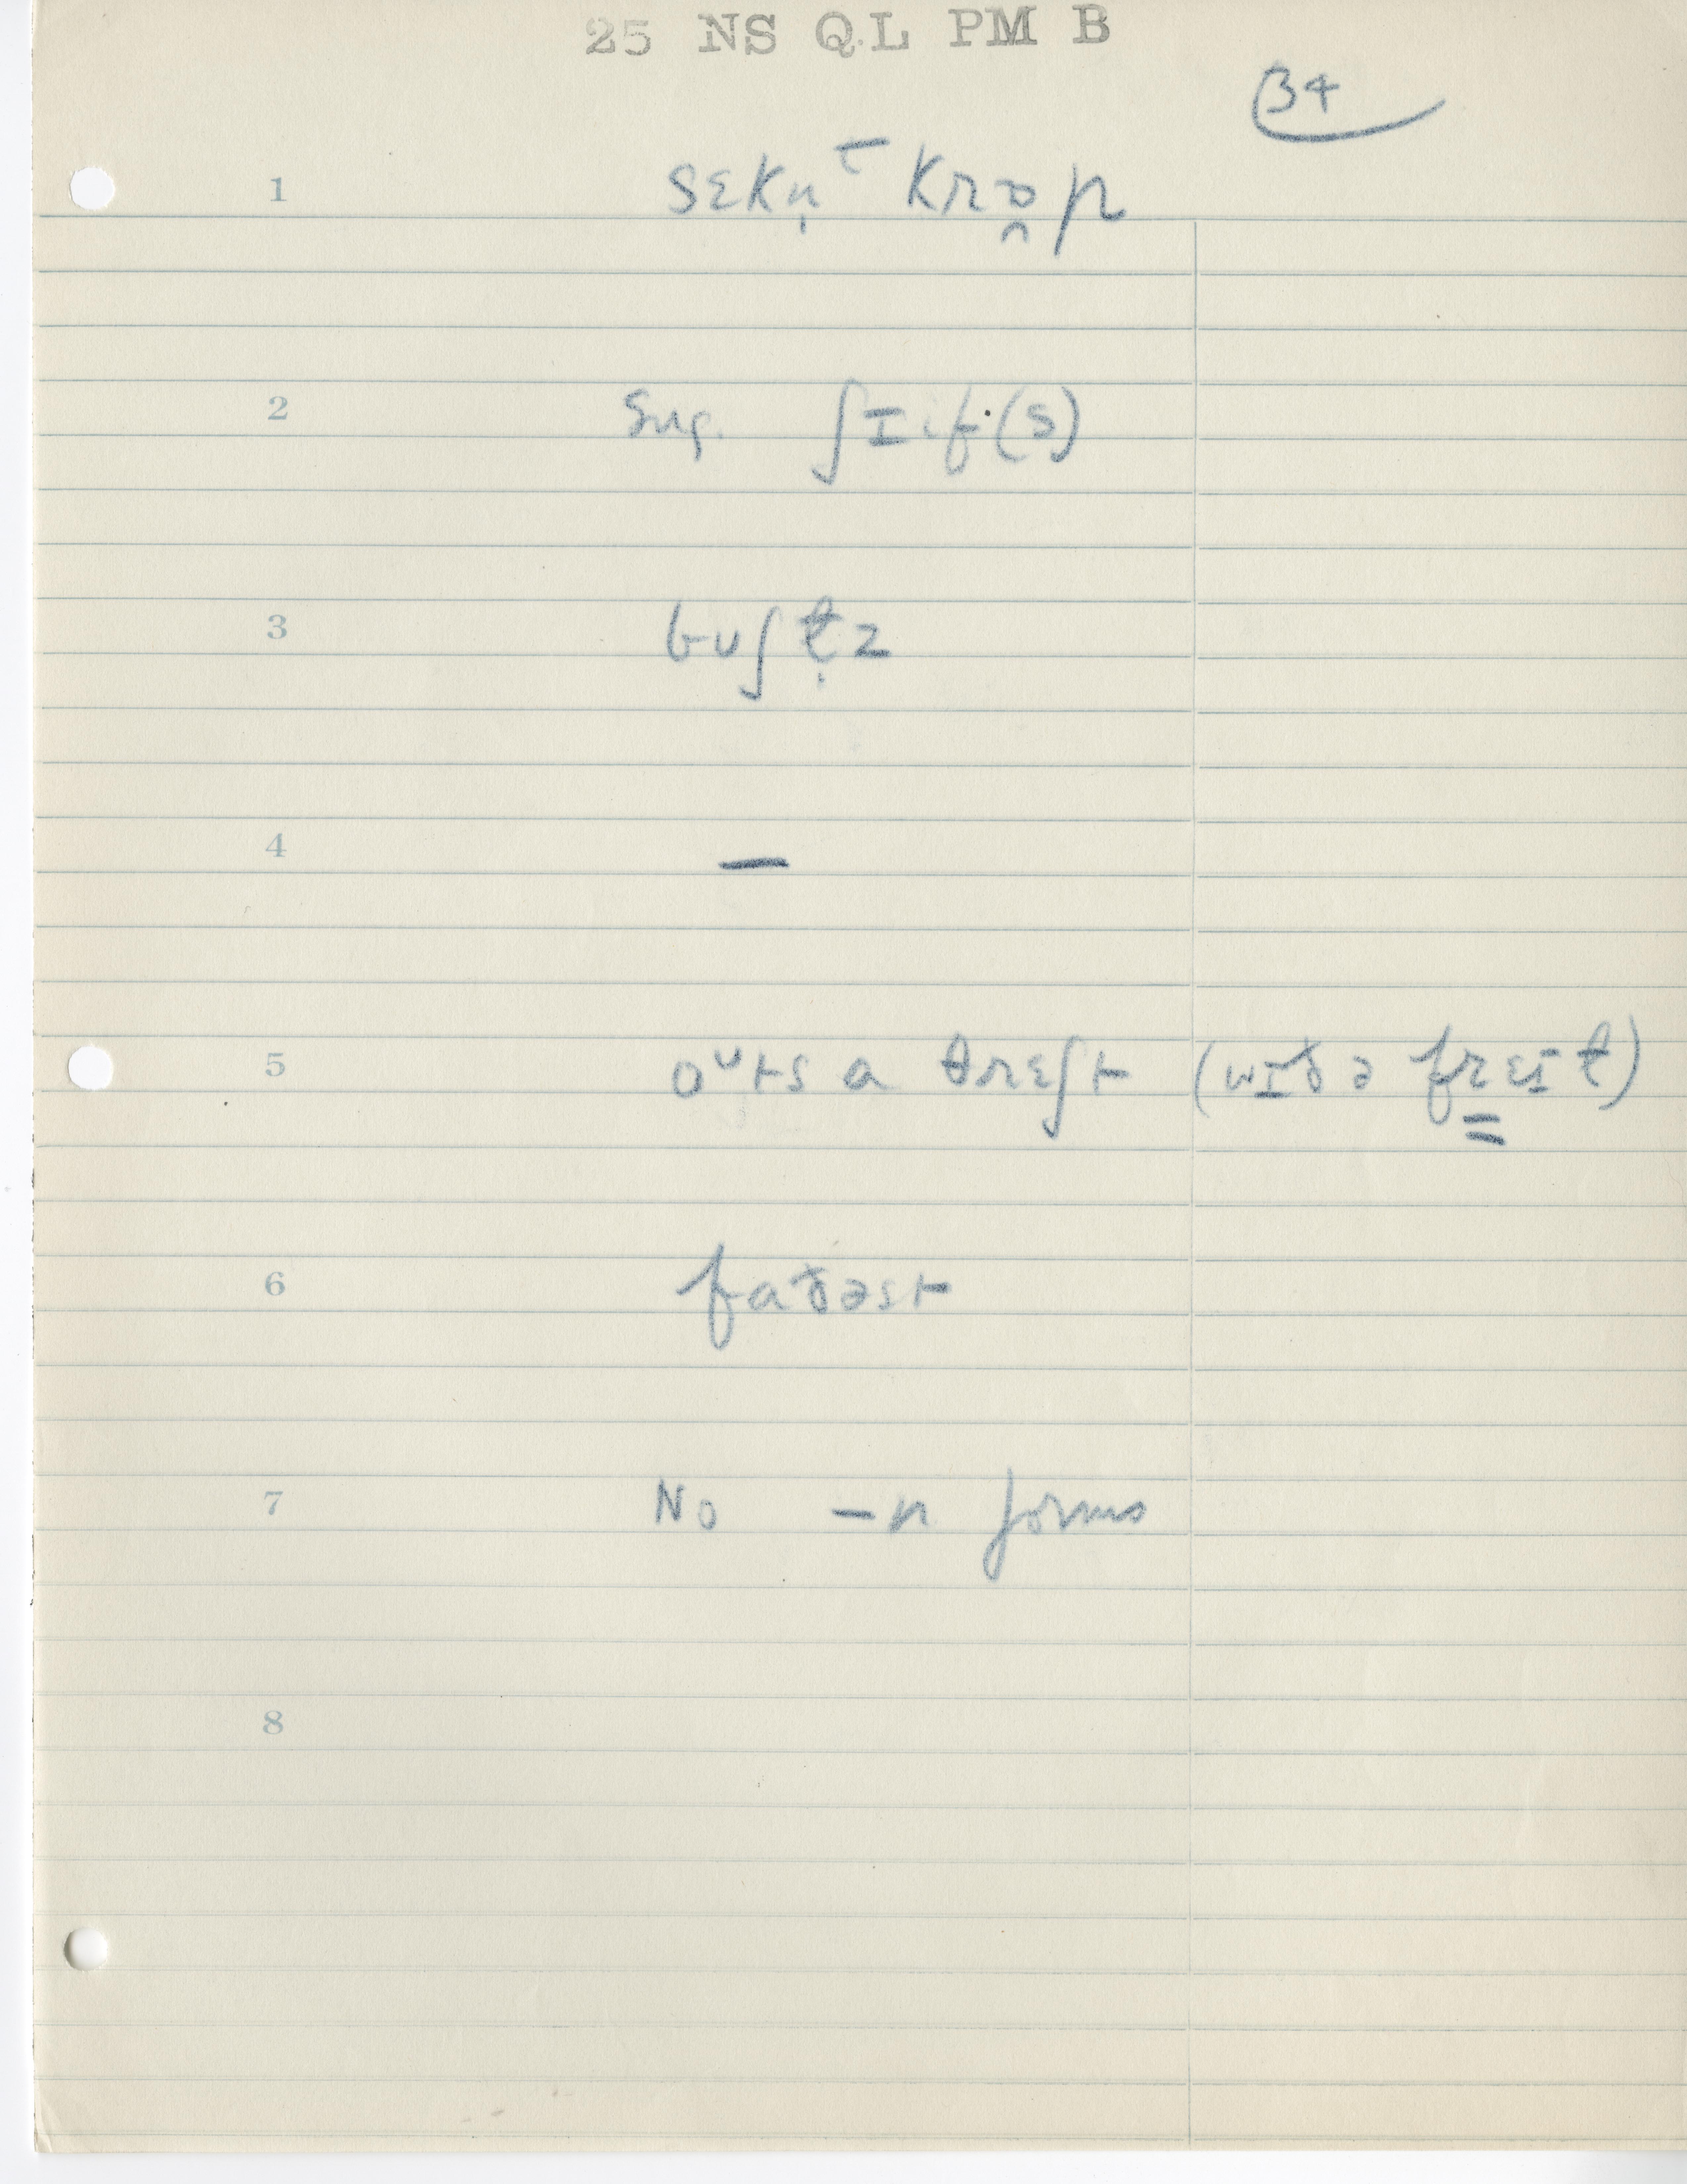 25 NS QL PM B
34
1 sɛkn̩ᵗ krɒ̯p
2 Sug. ʃɪif(s)
3 bʊʃl̩z
4 —
5 oᵘts a θrɛʃt (wɪð ə frɛɪl)
6 faðəst
7 No -n forms
8